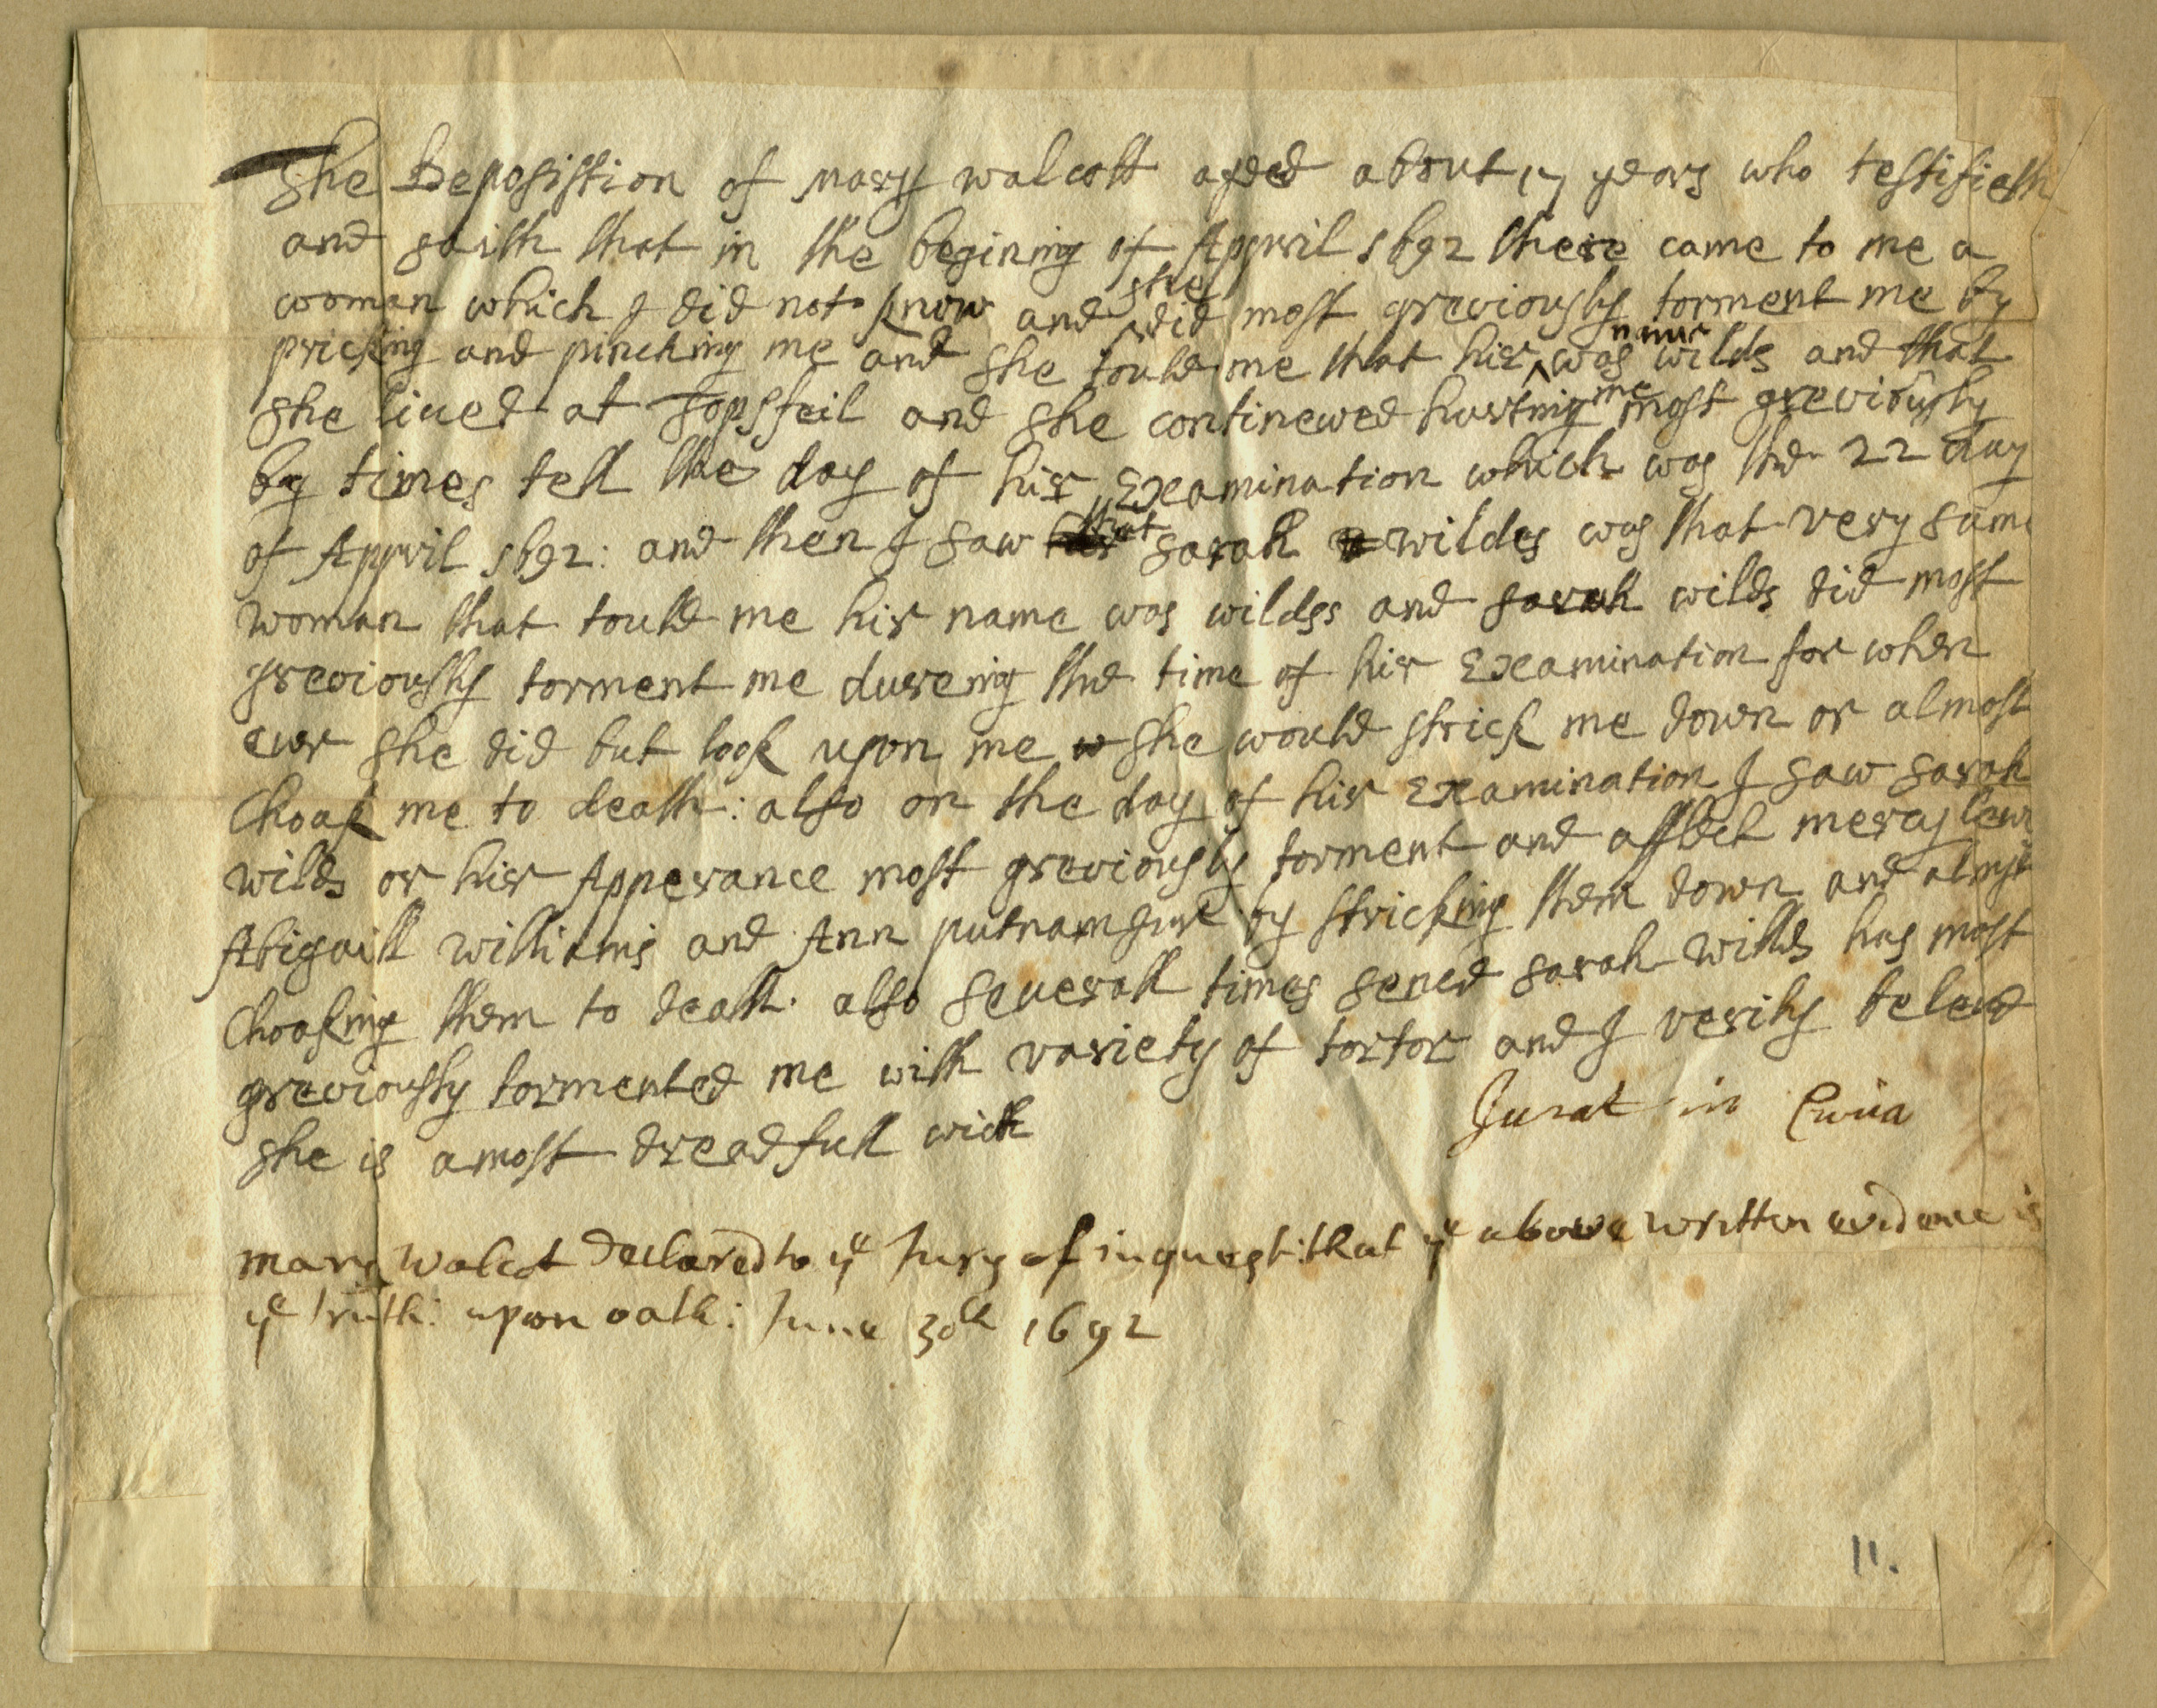 The Deposistion of mary walcott agged about 17 years who testifieth
and saith that in the begining of Appril 1692 there came to me a
woman which I did not know and she did most greviously torment me by
pricking and pinching me and she tould me that hir name was wilds and that
she liued at Topsfeil and she continewed hurting me most greviously
by times tell the day of hir Examination which was the 22 day
of Appril 1692: and then I saw that sarah wildes was that very same
woman that tould me hir name was wildes and sarah wilds did most
greviously torment me dureing the time of hir Examination for when
euer she did but look upon me she would strick me down or almost
Choak me to death: also on the day of hir Examination I saw sarah
wilds or hir Apperance most greviously torment and afflect mercy lew
Abigaill williams and Ann putnam junr by stricking them down and almost
Choaking them to death. also seuerall times sence sarah wilds has most
greviously tormented me with variety of tortor and I verily beleue
she is amost dreadfull wicth
Jurat in Curia
mary Walcot declared to ye Jury of inquest: that ye above written evidence is
ye truth: upon oath: June 30th 1692
11.